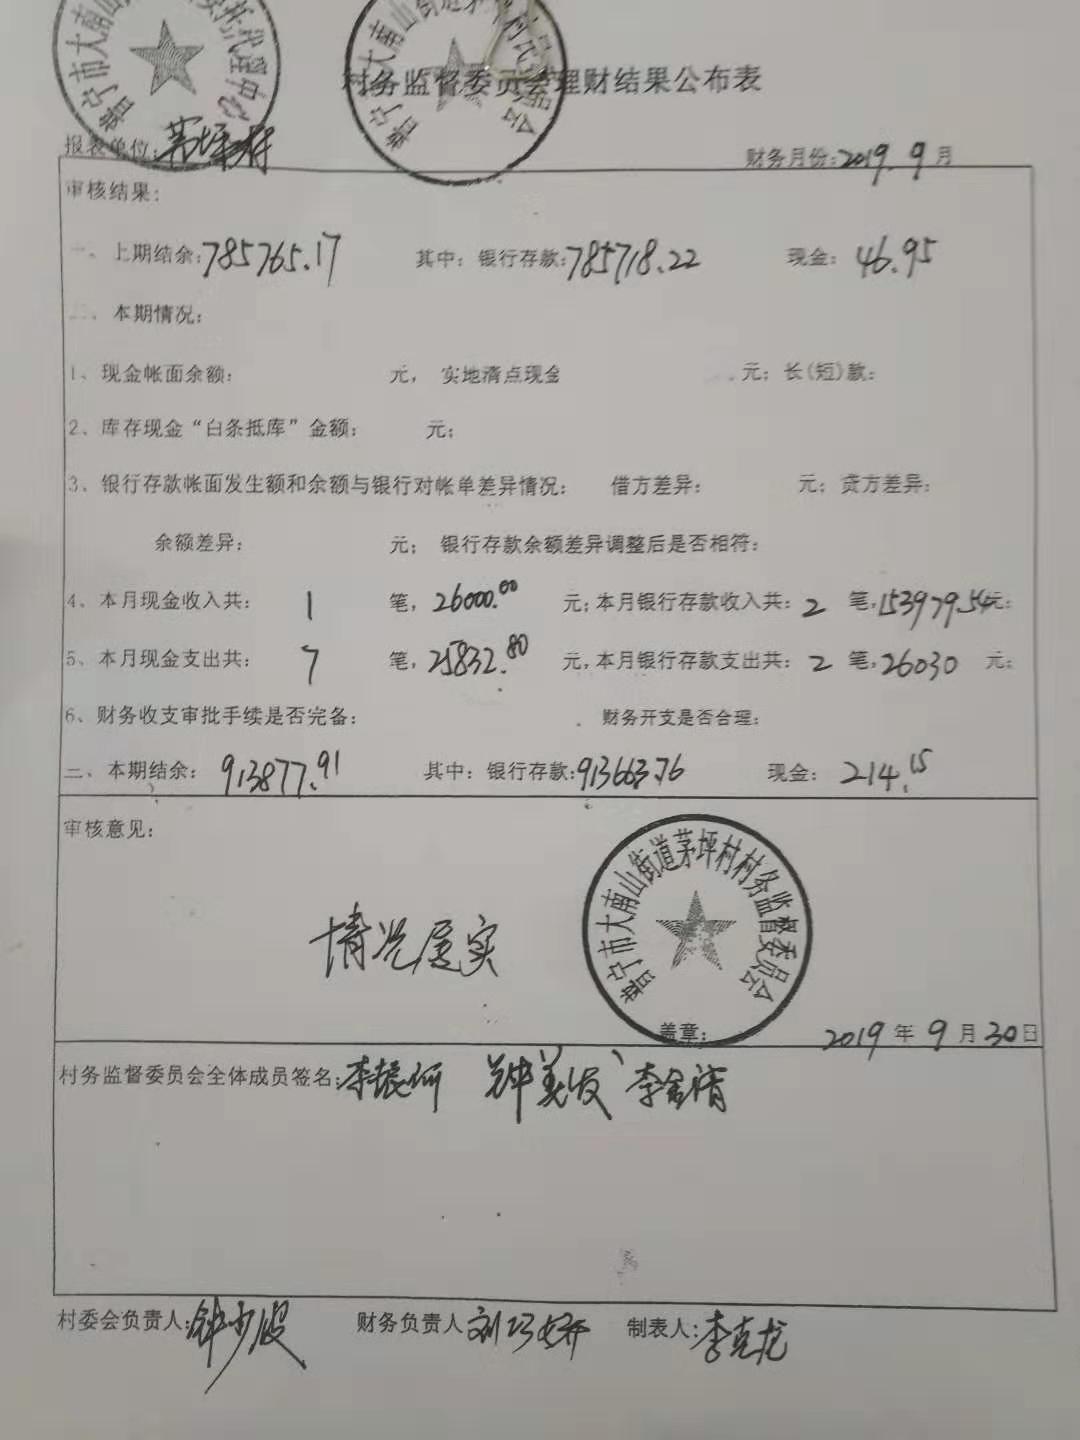 普宁市大南山 委托代理中心
普宁市大南山街道茅坪村民委员会
村务监督委员会理财结果公布表
报表单位:茅坪村
财务月份:2019.9月
审核结果:
一、上期结余:785765.17 其中:银行存款:785718.22 现金:46.95
二、本期情况:
1、现金帐面余额: 元, 实地清点现金 元;长(短)款:
2、库存现金“白条抵库”金额: 元;
3、银行存款帐面发生额和余额与银行对帐单差异情况: 借方差异: 元;贷方差异:
余额差异: 元; 银行存款余额差异调整后是否相符:
4、本月现金收入共: 1 笔,26000.00 元;本月银行存款收入共:2 笔,153979.54元;
5、本月现金支出共: 7 笔,25832.80 元,本月银行存款支出共:2 笔,26030 元;
6、财务收支审批手续是否完备: 财务开支是否合理:
三、本期结余: 913877.91 其中:银行存款:913663.76 现金:214.15
审核意见:
情况属实
普宁市大南山街道茅坪村村务监督委员会
盖章: 2019年9月30日
村务监督委员会全体成员签名:李 钟美 李
村委会负责人:钟少波 财务负责人刘巧娇 制表人:李克龙